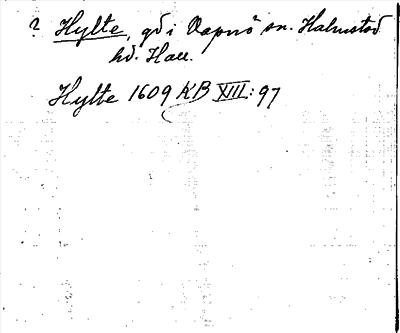 ? Hylte, gd i Vapnö sn. Halmstad
hd. Hall.
Hylte 1609 KB XIII:97